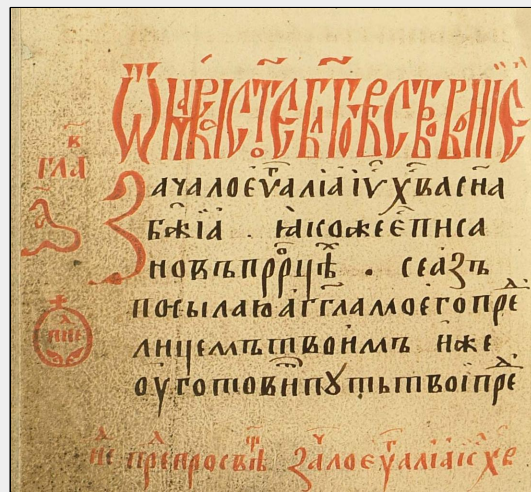 Ѿ МАРКА СТ҃ОЕ
глаⷡ҇
а
Зачало еѵⷢ҇алїа іѵ х҃ва сн҃а
бж҃їа . ꙗкоже є҆ писа
но въ пррⷪ҇цѣⷯ . се азъ
посылаю агг҃ла моего преⷣ
лицемъ твоимъ иже
оуготовиⷮ пꙋть твоі преⷣ
преⷣ просвѣⷮ заⷱ҇ло еѵⷢ҇алїа іс х҃в